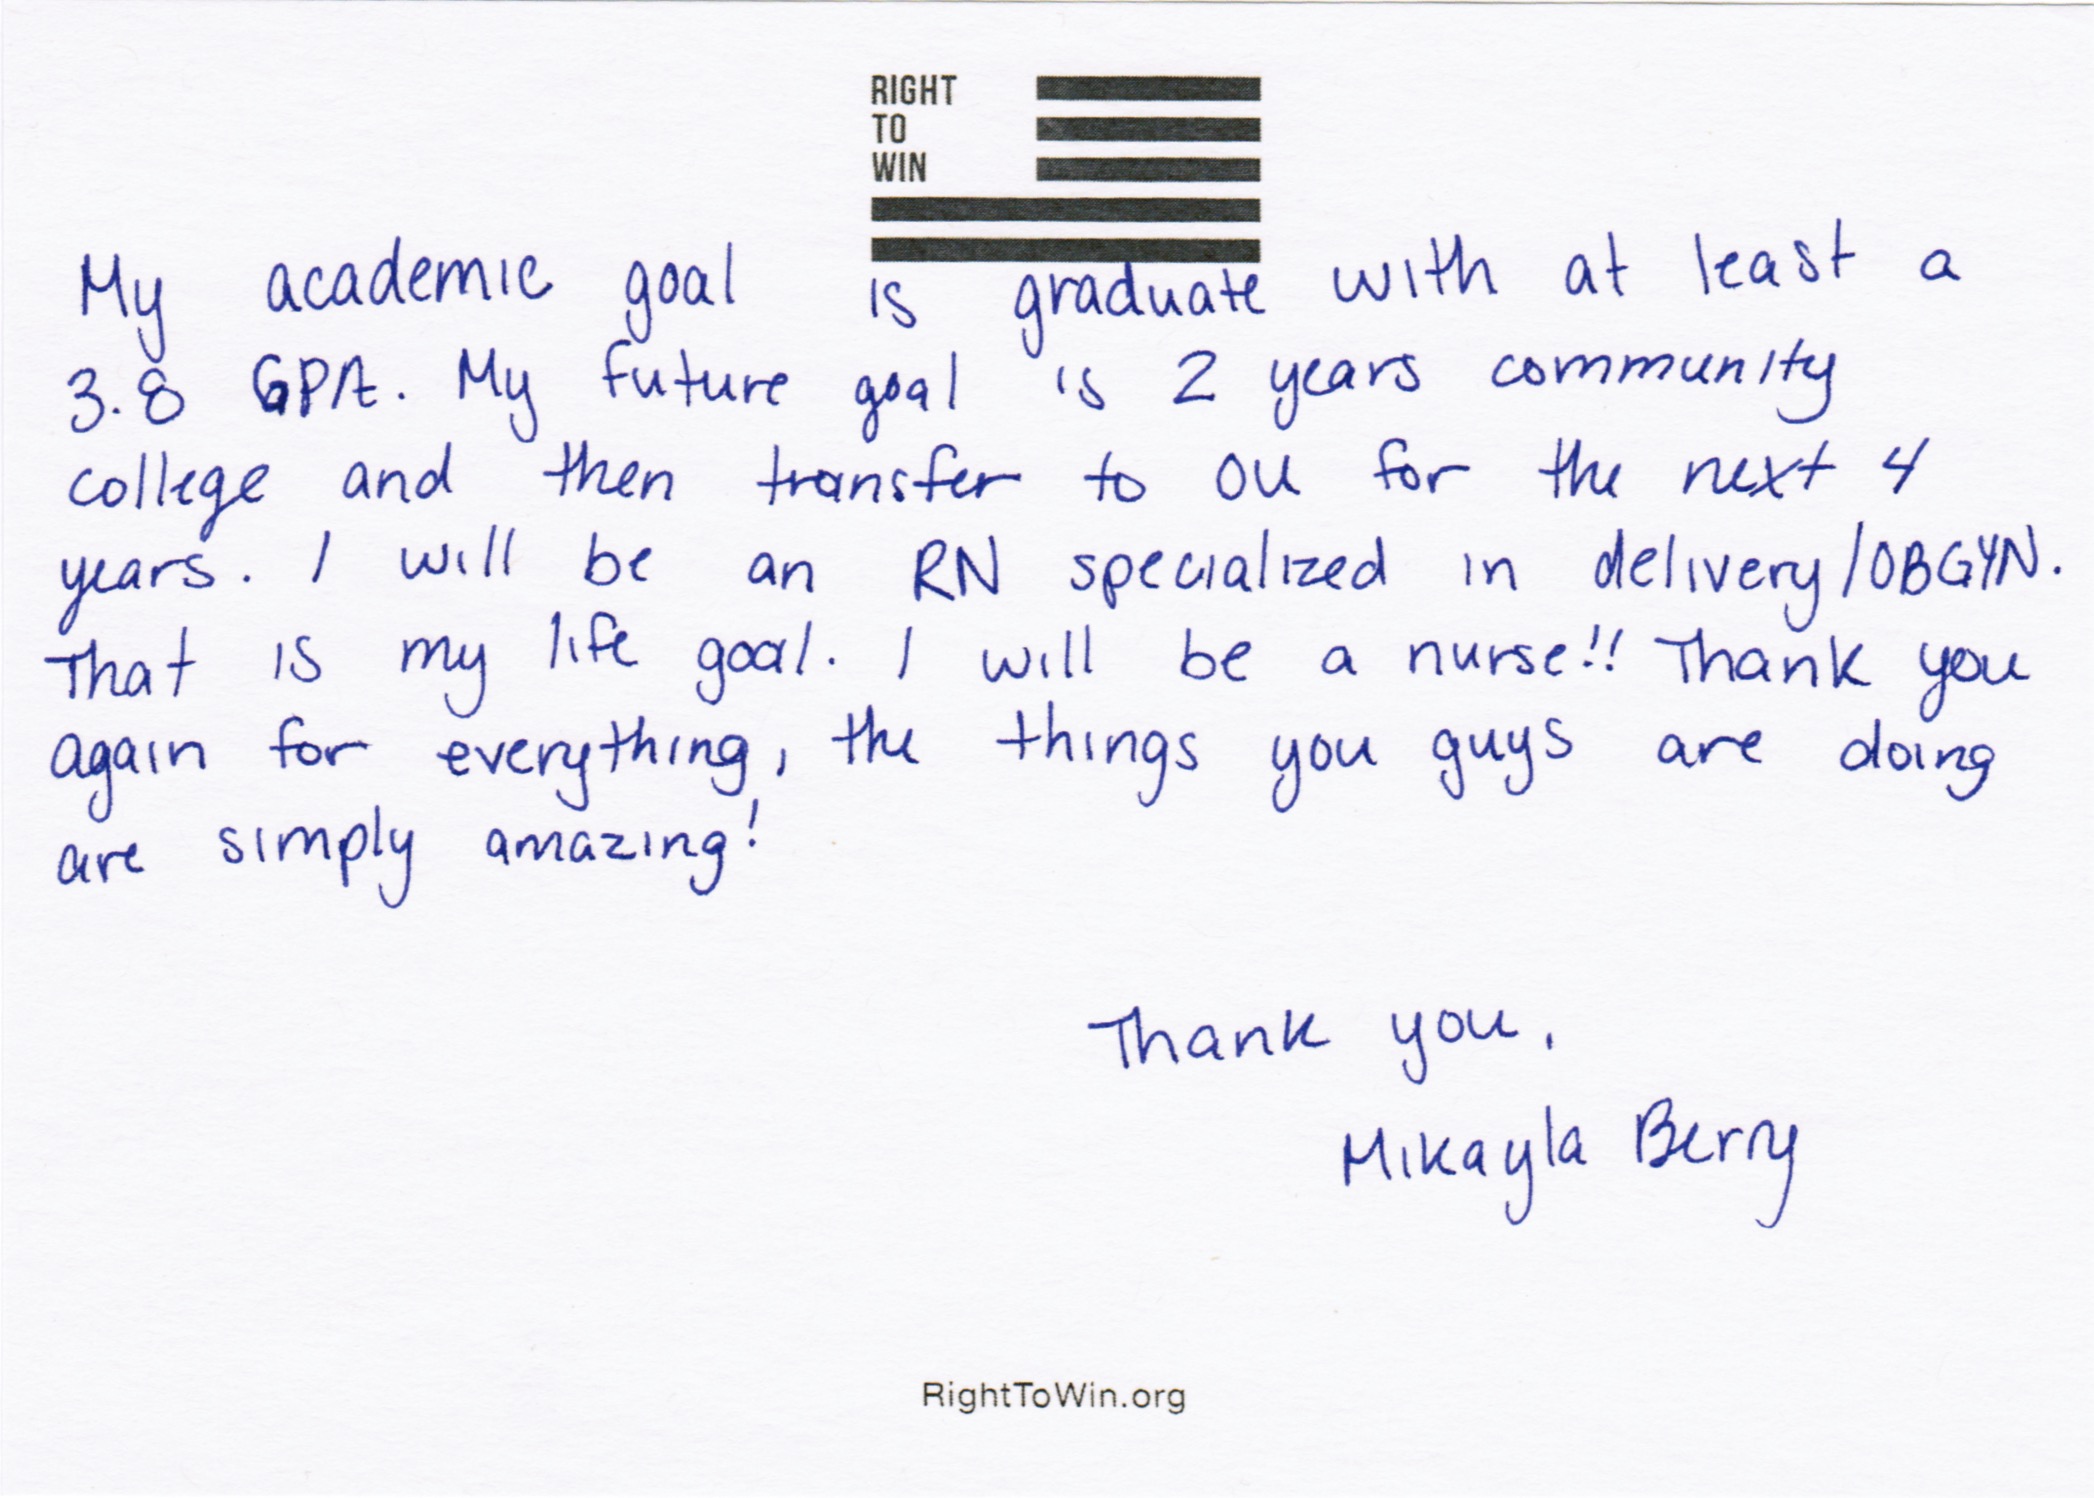 RIGHT
TO
WIN
My academic goal is graduate with at least a
3.8 GPA. My future goal is 2 years community
college and then transfer to OU for the next 4
years. I will be an RN specialized in delivery/OBGYN.
That is my life goal. I will be a nurse!! Thank you
again for everything, the things you guys are doing
are simply amazing!
Thank you,
Mikayla Berry
RightToWin.org